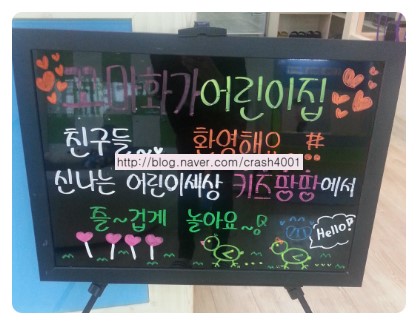 꼬마화가어린이집
친구들~ 환영해요
http://blog.naver.com/crash4001
신나는 어린이세상 키즈팡팡에서
즐~겁게 놀아요~
Hello?